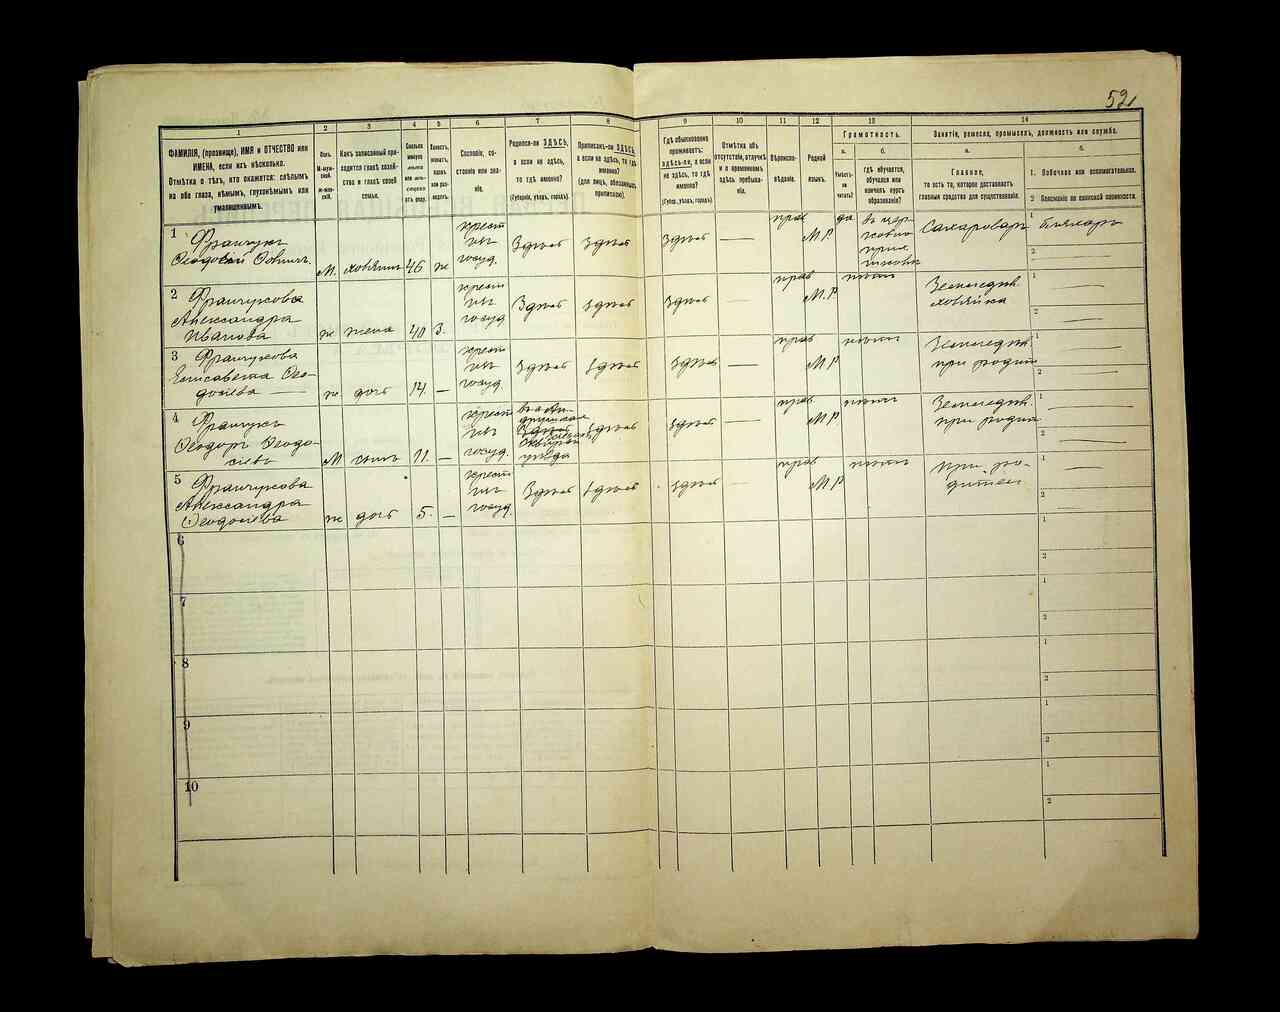 52
1
2
3
4
5
6
7
8
9
10
11
12
13
14
ФАМИЛІЯ, (прозвище), ИМЯ и ОТЧЕСТВО или
ИМЕНА, если ихъ нѣсколько.
Отмѣтка о тѣхъ, кто окажется: слѣпымъ
на оба глаза, нѣмымъ, глухонѣмымъ или
умалишеннымъ.
Полъ.
М-муж-
ской.
Ж-жен-
скій.
Какъ записанный при-
ходится главѣ хозяй-
ства и главѣ своей
семьи.
Сколько
минуло
лѣтъ
или мѣ-
сяцевъ
отъ роду.
Холостъ,
женатъ,
вдовъ
или раз-
веденъ.
Сословіе, со-
стояніе или зва-
ніе.
Родился-ли ЗДѢСЬ,
а если не здѣсь,
то гдѣ именно?
(Губернія, уѣздъ, городъ).
Приписанъ-ли ЗДѢСЬ,
а если не здѣсь, то гдѣ
именно?
(для лицъ, обязанныхъ
припиской).
Гдѣ обыкновенно
проживаетъ:
здѣсь-ли, а если
не здѣсь, то гдѣ
именно?
(Губер., уѣздъ, городъ).
Отмѣтка объ
отсутствіи, отлучкѣ
и о временномъ
здѣсь пребыва-
ніи.
Вѣроиспо-
вѣданіе.
Родной
языкъ.
Грамотность.
а.
Умѣетъ-
ли
читать?
б.
гдѣ обучается,
обучался или
кончилъ курсъ
образованія?
Занятіе, ремесло, промыселъ, должность или служба.
а.
Главное,
то есть то, которое доставляетъ
главныя средства для существованія.
б.
1. Побочное или вспомогательное.
2 Положеніе по воинской повинности.
1 Франчукъ
М. хозяинъ 46 ж
крест
государ.
Здѣсь здѣсь здѣсь —
прав М.Р. да
Сахароваръ
1
2
2 Франчукова
Александра
Иванова
ж жена 40 З.
крест
Здѣсь здѣсь здѣсь —
прав М.Р.
хозяйка
1
2
3 Франчукова
Елисавета Ѳео-
досіева
ж дочь 14. —
крест
Здѣсь здѣсь здѣсь —
прав М.Р.
при родит
1
2
4 Франчукъ
Ѳеодоръ Ѳеодо-
сіевъ
М сынъ 11. —
крест
уѣзда
здѣсь здѣсь —
прав М.Р.
при родит
1
2
5 Франчукова
Александра
Ѳеодосіева
ж дочь 5. —
крест
Здѣсь здѣсь здѣсь —
прав М.Р.
при ро-
дител
1
2
6
1
2
7
1
2
8
1
2
9
1
2
10
1
2